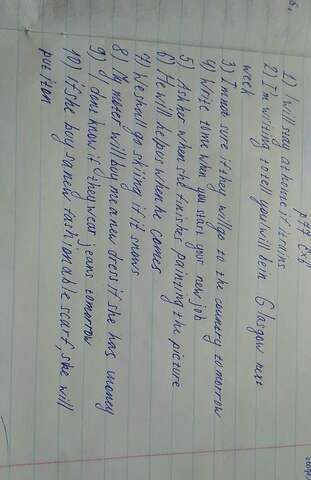 p 77 Ex 8
1) I will stay at home if it rains
2) I'm writing to tell you will be in Glasgow next
week
3) I'm not sure if they will go to the country tomorrow
4) Write to me when you start your new job
5) Ask her when she finishes painting the picture
6) He will help us when he comes
7) We shall go skiing if it snows
8) My mother will buy me a new dress if she has money
9) I dont know if they wear jeans tomorrow
10) If she buy s a new fashionable scarf, she will
put it on